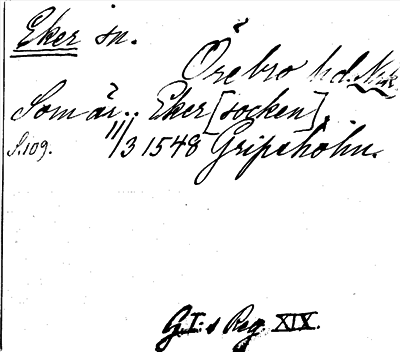 Eker sn.
Örebro hd. Nrk
Som är.. Eker [socken].
S.109. 11/3 1548 Gripsholm.
G.I:s Reg. XIX.